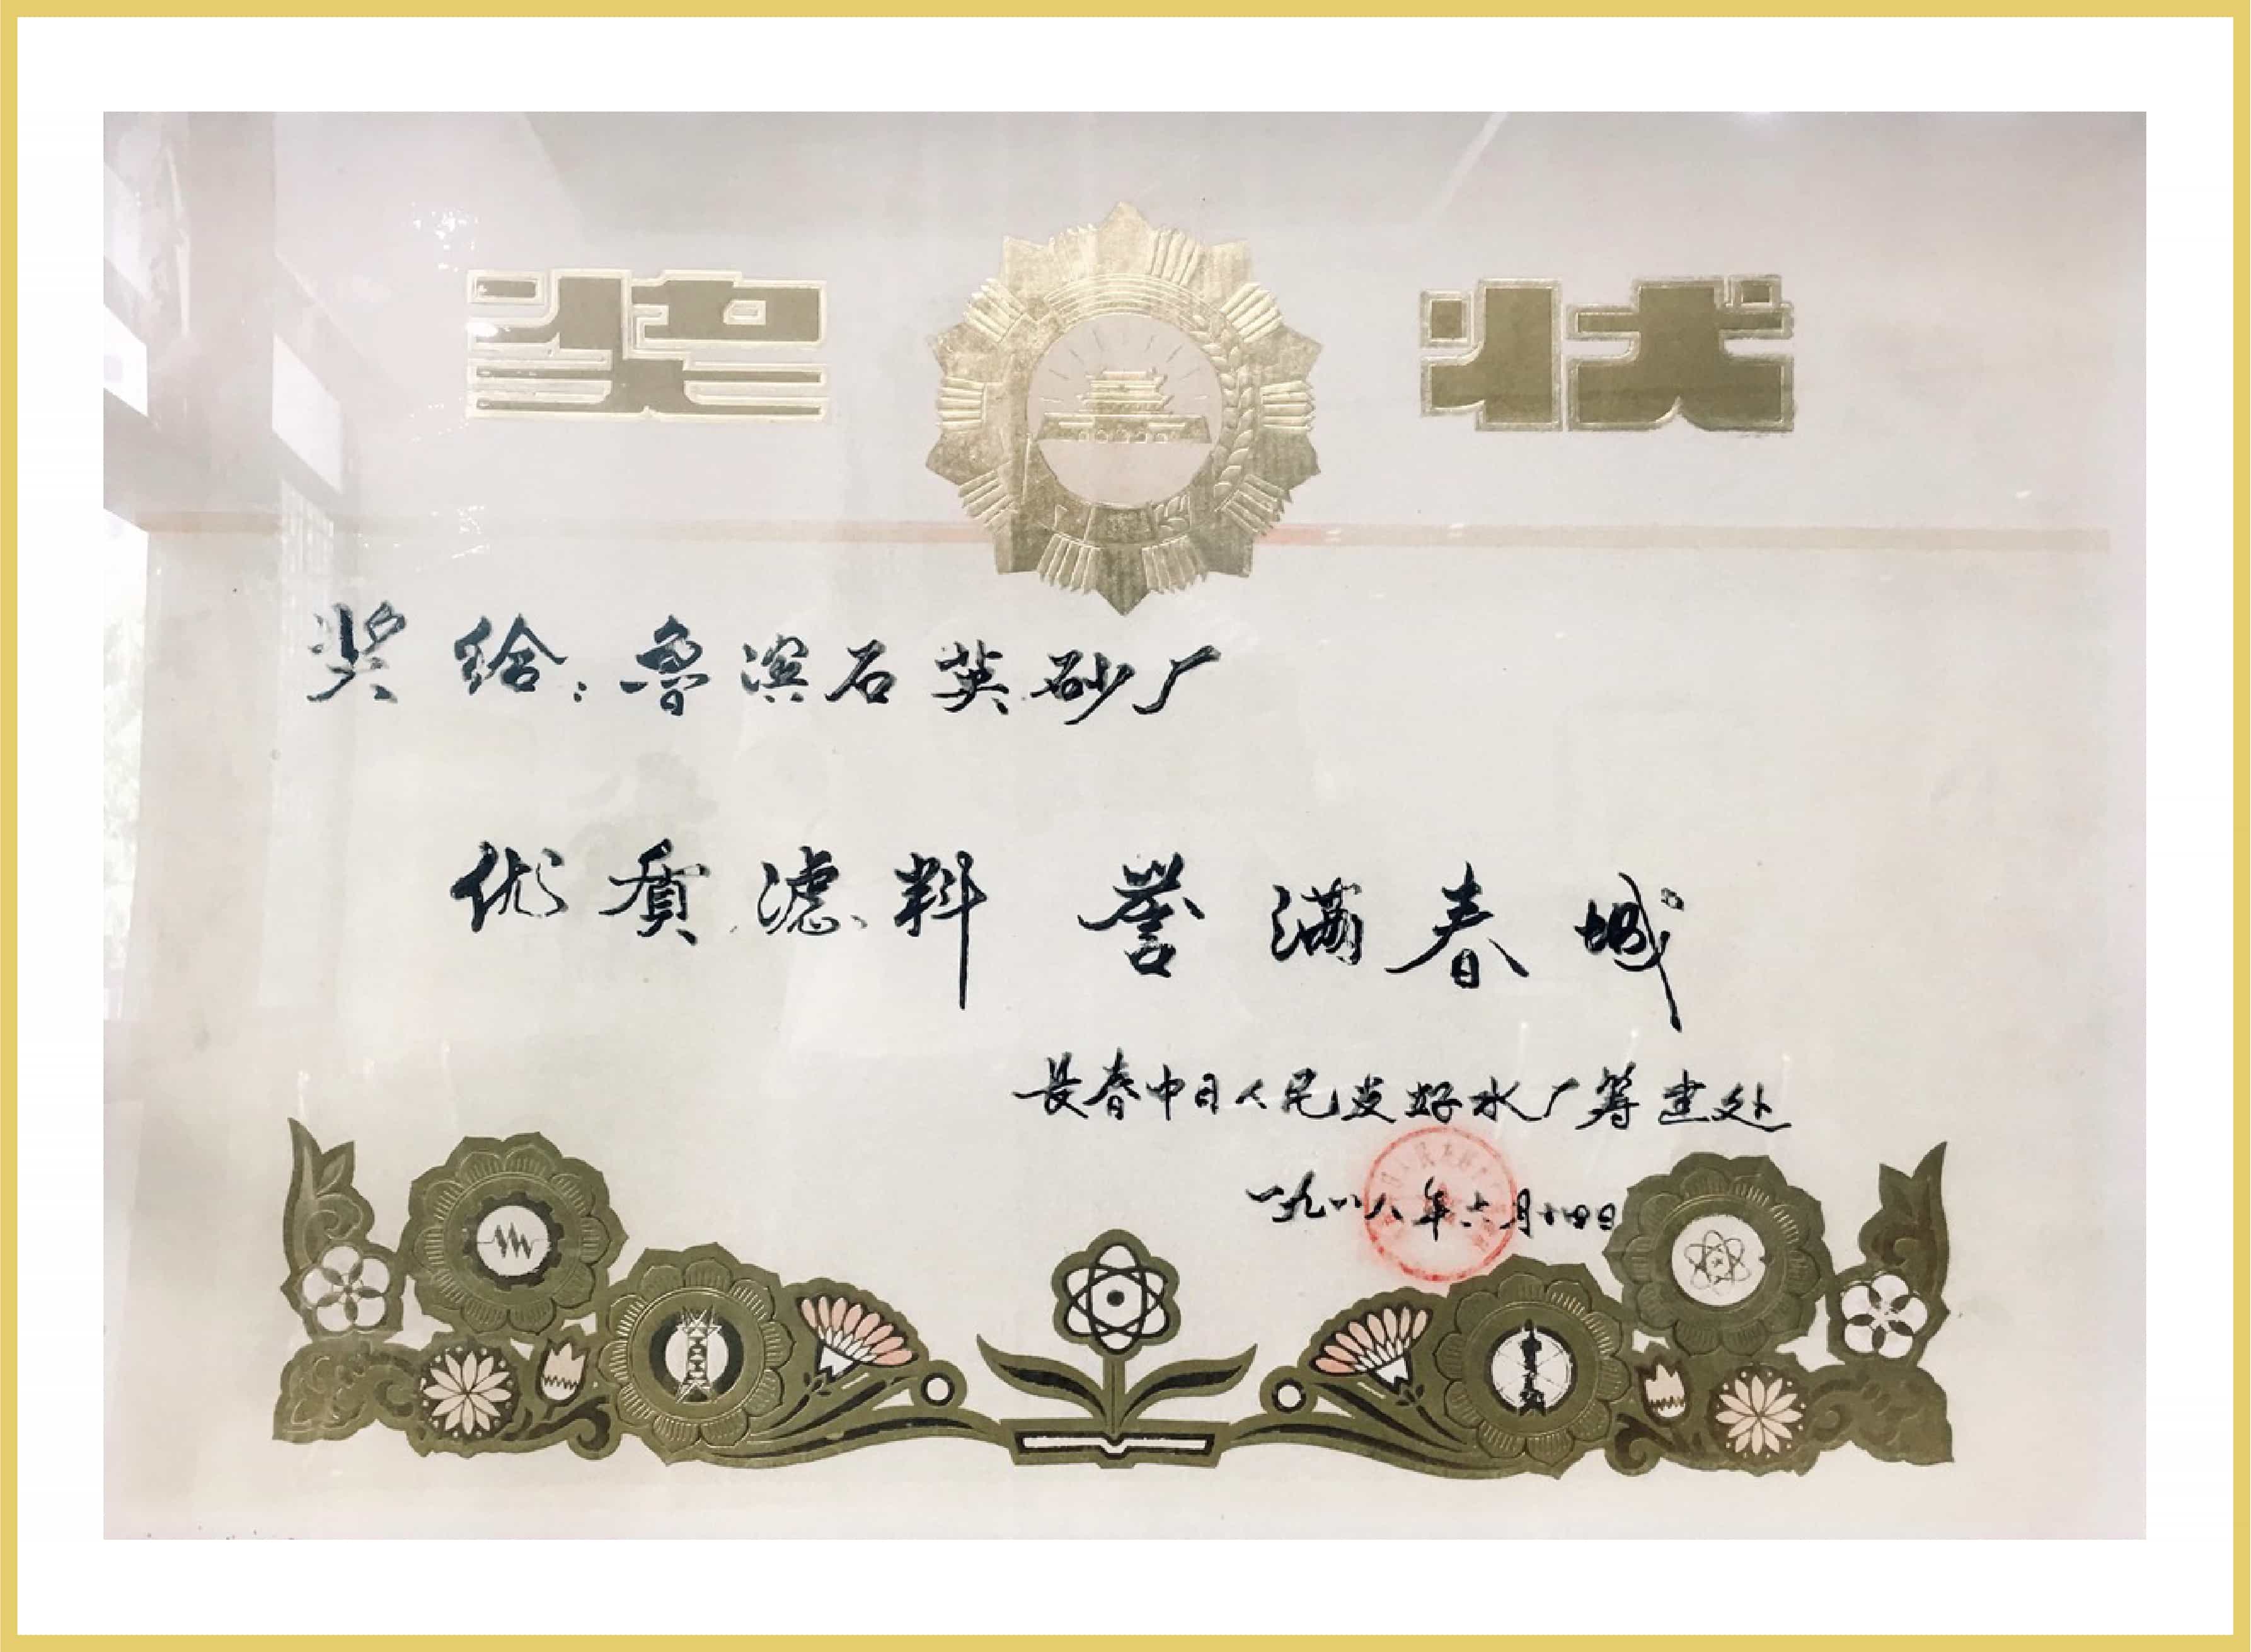 奖状
奖给：鲁滨石英砂厂
优质滤料 誉满春城
长春中日人民友好水厂筹建处
一九八八年六月十四日